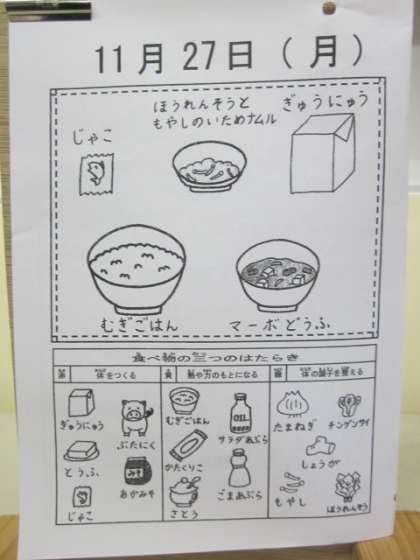 11月27日(月)
じゃこ
ほうれんそうと
もやしのいためナムル
ぎゅうにゅう
むぎごはん
マーボどうふ
食べ物の三つのはたらき
体をつくる
熱や力のもとになる
体の調子を整える
ぎゅうにゅう
ぶたにく
とうふ
みそ
あかみそ
じゃこ
むぎごはん
OIL
サラダあぶら
かたくりこ
さとう
ごまあぶら
たまねぎ
チンゲンサイ
しょうが
もやし
ほうれんそう